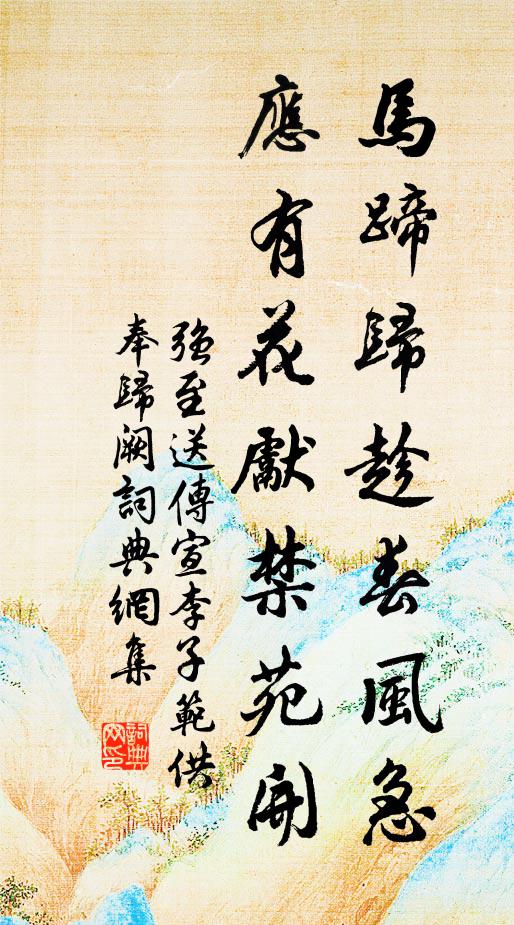 馬蹄歸趁春風急
應有花獻禁苑開
強至送傳宣李子範供
奉歸闕詞典網集
詞典網印